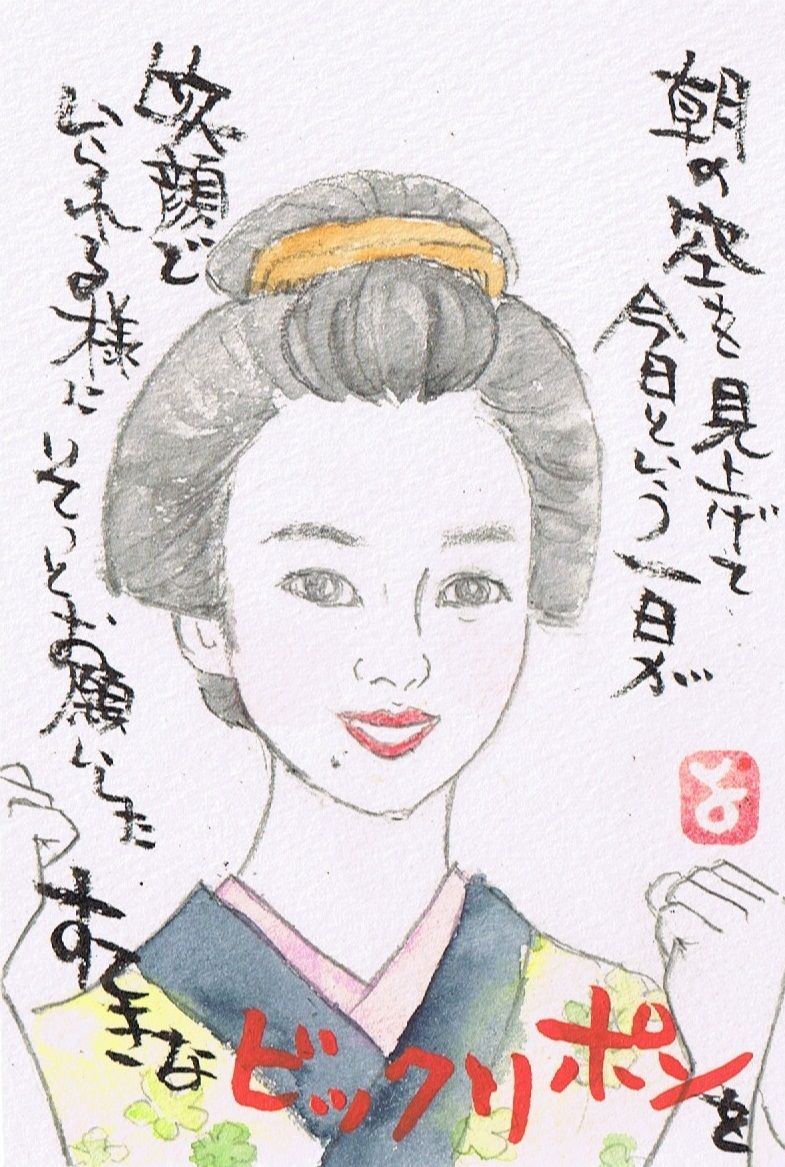 朝の空を見上げて
今日という一日が
笑顔で
いられる様に そっとお願いした
すてきな
ビックリポンを
と